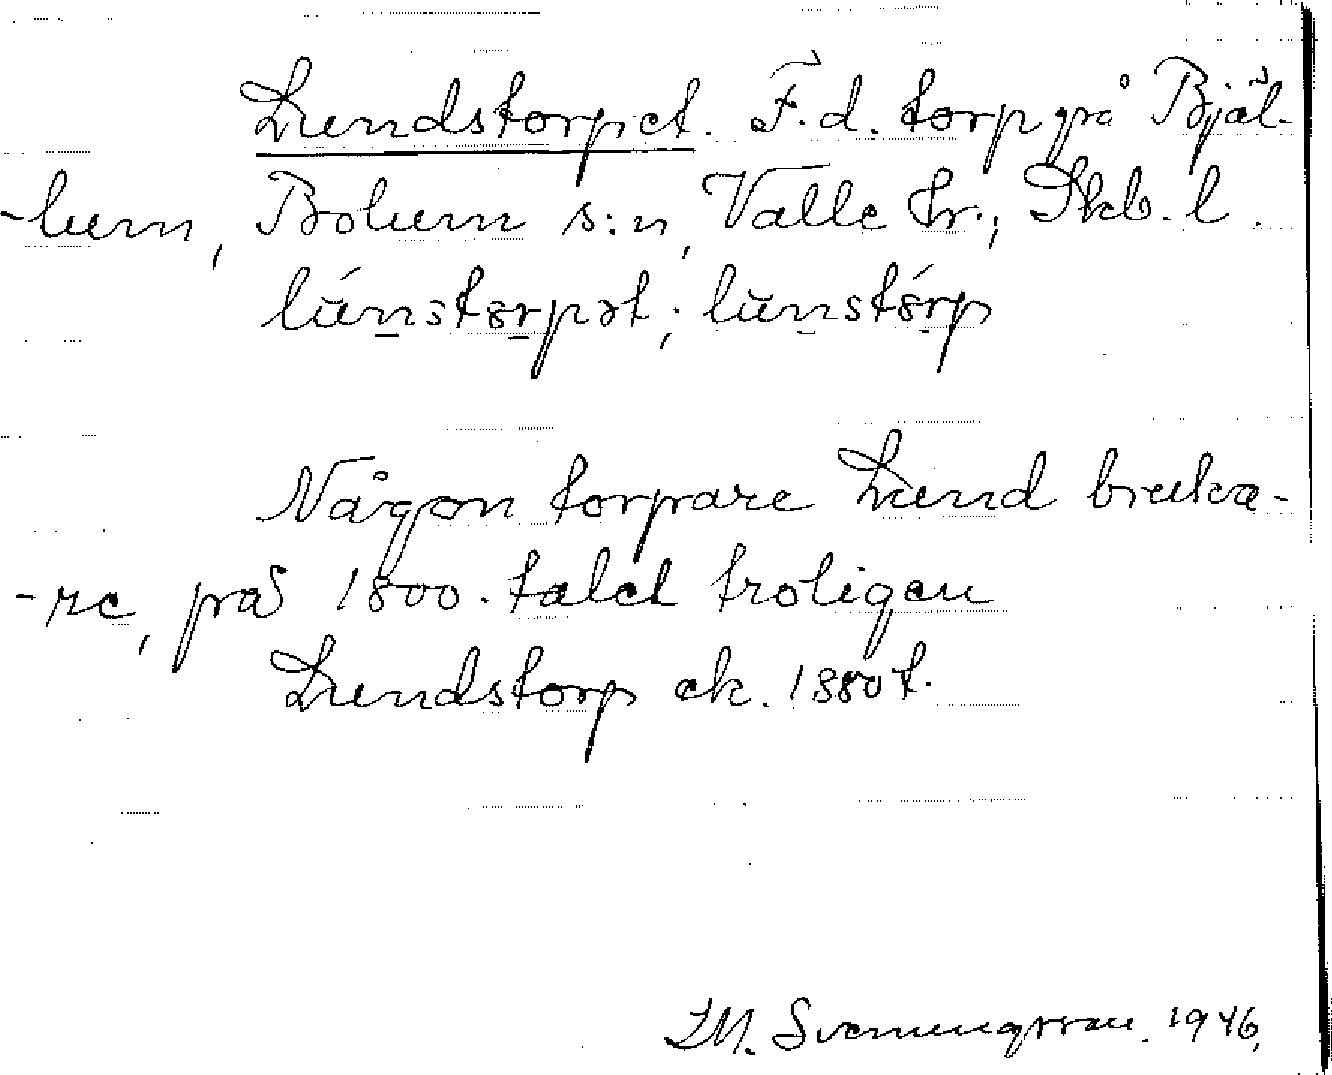 Lundstorpet. F.d. torp på Bjäl-
-lum, Bolum s:n, Valle hr., Skb. l.
lúnstørpət; lunstǿrp
Någon torpare Lund bruka-
-re, på 1800-talet troligen
Lundstorp ek. 1880 t.
I.M. Svenungsson. 1946,